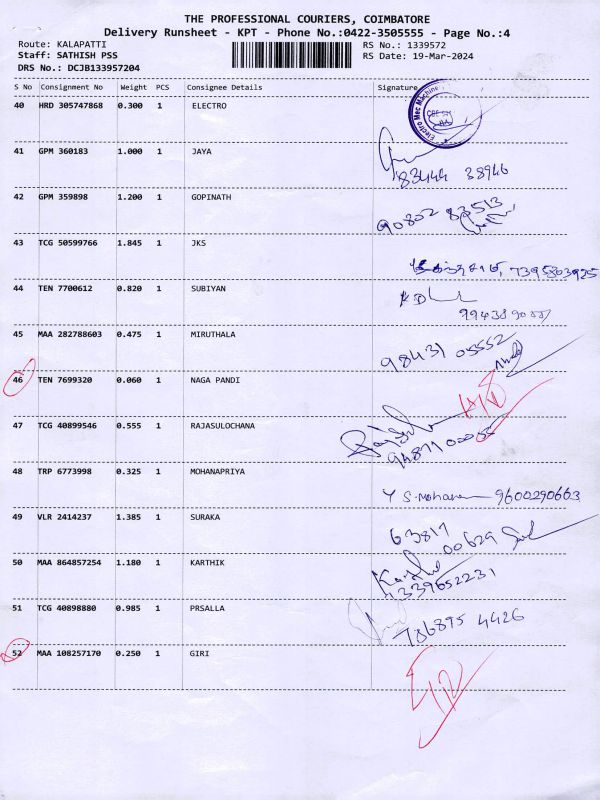 THE PROFESSIONAL COURIERS, COIMBATORE
Delivery Runsheet - KPT - Phone No.:0422-3505555 - Page No.:4
Route: KALAPATTI RS No.: 1339572
Staff: SATHISH PSS RS Date: 19-Mar-2024
DRS No.: DCJB133957204
S No Consignment No Weight PCS Consignee Details Signature
40 HRD 305747868 0.300 1 ELECTRO
Electro Mec Machine
41 GPM 360183 1.000 1 JAYA
83444 38946
42 GPM 359898 1.200 1 GOPINATH
90802 83513
43 TCG 50599766 1.845 1 JKS
7395863925
44 TEN 7700612 0.820 1 SUBIYAN
45 MAA 282788603 0.475 1 MIRUTHALA
98431 05552
46 TEN 7699320 0.060 1 NAGA PANDI
47 TCG 40899546 0.555 1 RAJASULOCHANA
48 TRP 6773998 0.325 1 MOHANAPRIYA
9600290663
49 VLR 2414237 1.385 1 SURAKA
63817
00629
50 MAA 864857254 1.180 1 KARTHIK
7339652231
51 TCG 40898880 0.985 1 PRSALLA
786895 4426
52 MAA 108257170 0.250 1 GIRI